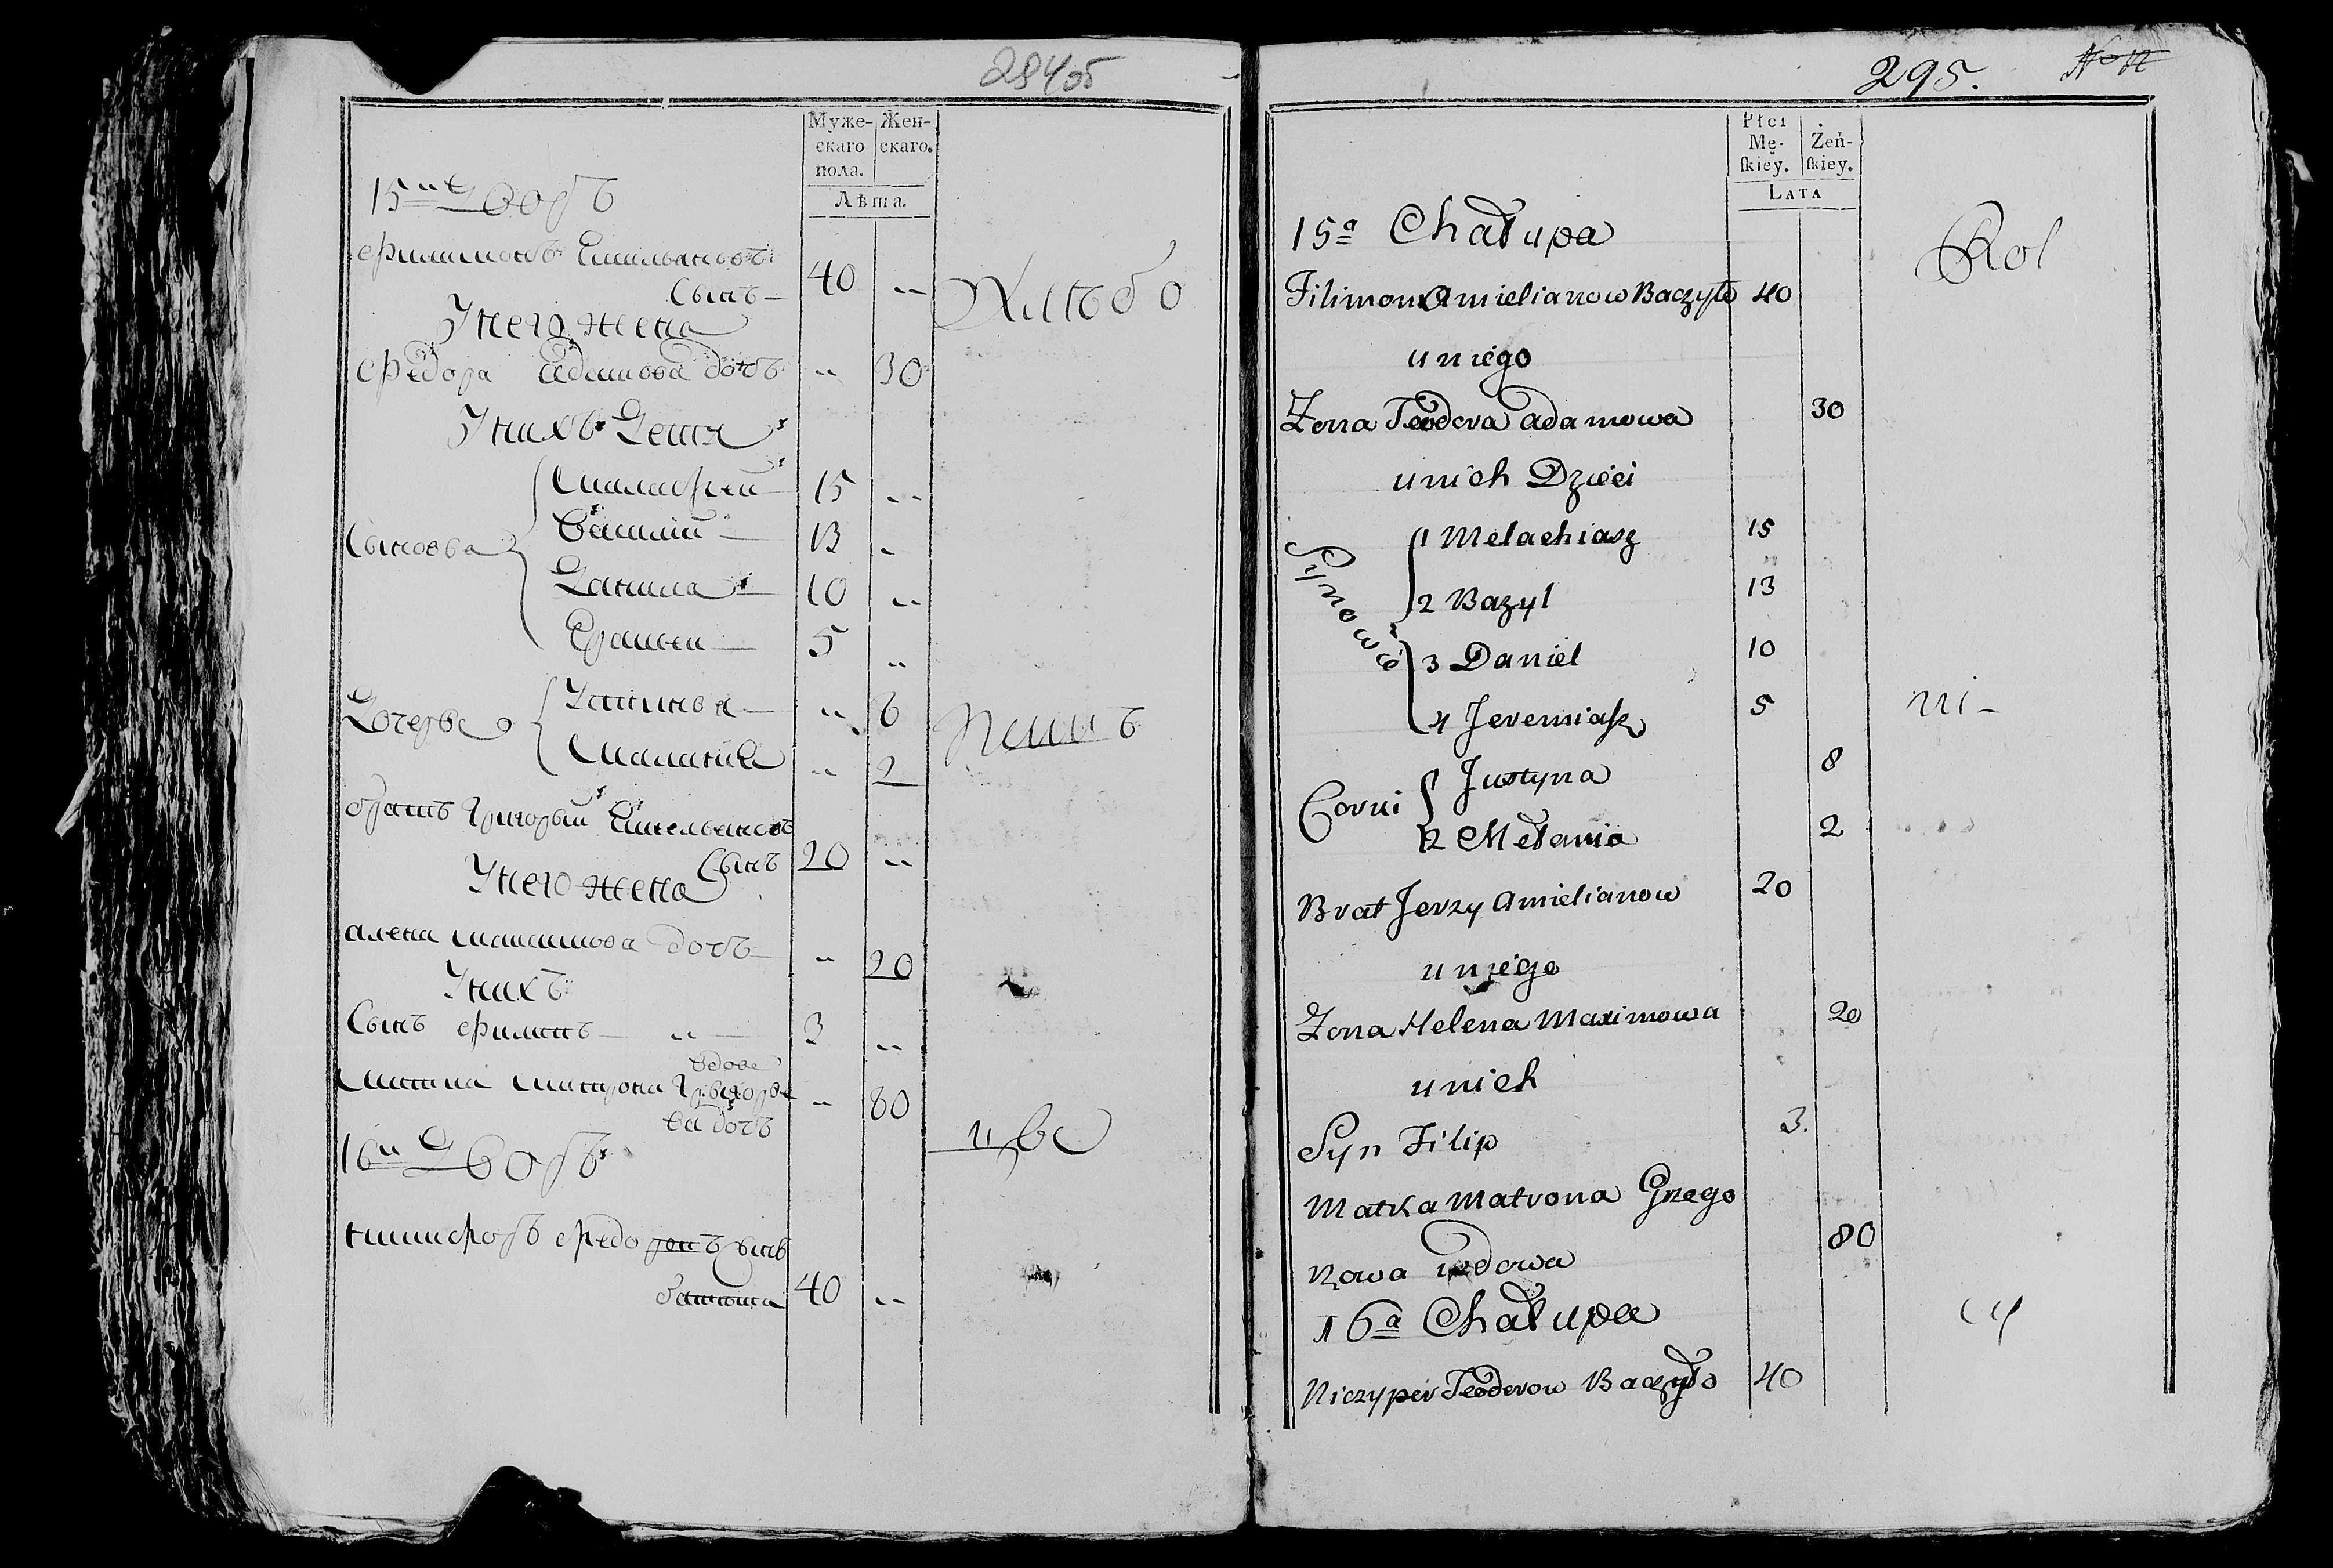 284об
Муже- Жен-
скаго скаго.
пола.
Лѣта.
15й Дворъ
Филимонъ Емильяновъ
Сынъ 40 „
Хлѣбо
У него жена
Федора Адамова дочь „ 30
У нихъ Дети
Сыновья
Малафей 15 „
Василій 13 „
Данила 10 „
Ерамей 5 „
Дочерье
Устинья „ 8
Маланіе „ 2
пашъ
братъ Григорый Емельяновъ
Сынъ 20 „
У него жена
алена максимова дочь „ 20
У нихъ
Сынъ Филипъ „ 3 „
вдова
Матка Матрона Григорье
ва дочь „ 80
16й Дворъ
цые
никифоръ Федоровъ Сынъ
40 „
295. No 12
Płci
Mę- Żeń-
skiey. skiey.
LATA
15a Chałupa
Rol
Filimon Amielianow Baczyło 40
u niego
Zona Teodora adamowa 30
u nich Dzieci
Synowie
1 Melachiasz 15
2 Bazyl 13
3 Daniel 10
4 Jeremiasz 5
ni-
Corki
Justyna 8
2 Mełania 2
Brat Jerzy Amielianow 20
u niego
Zona Helena Maximowa 20
u nich
Syn Filip 3.
Matka Matrona Grzego
rzowa wdowa 80
16a Chałupa
cy
Niczypor Teodorow Baczyło 40